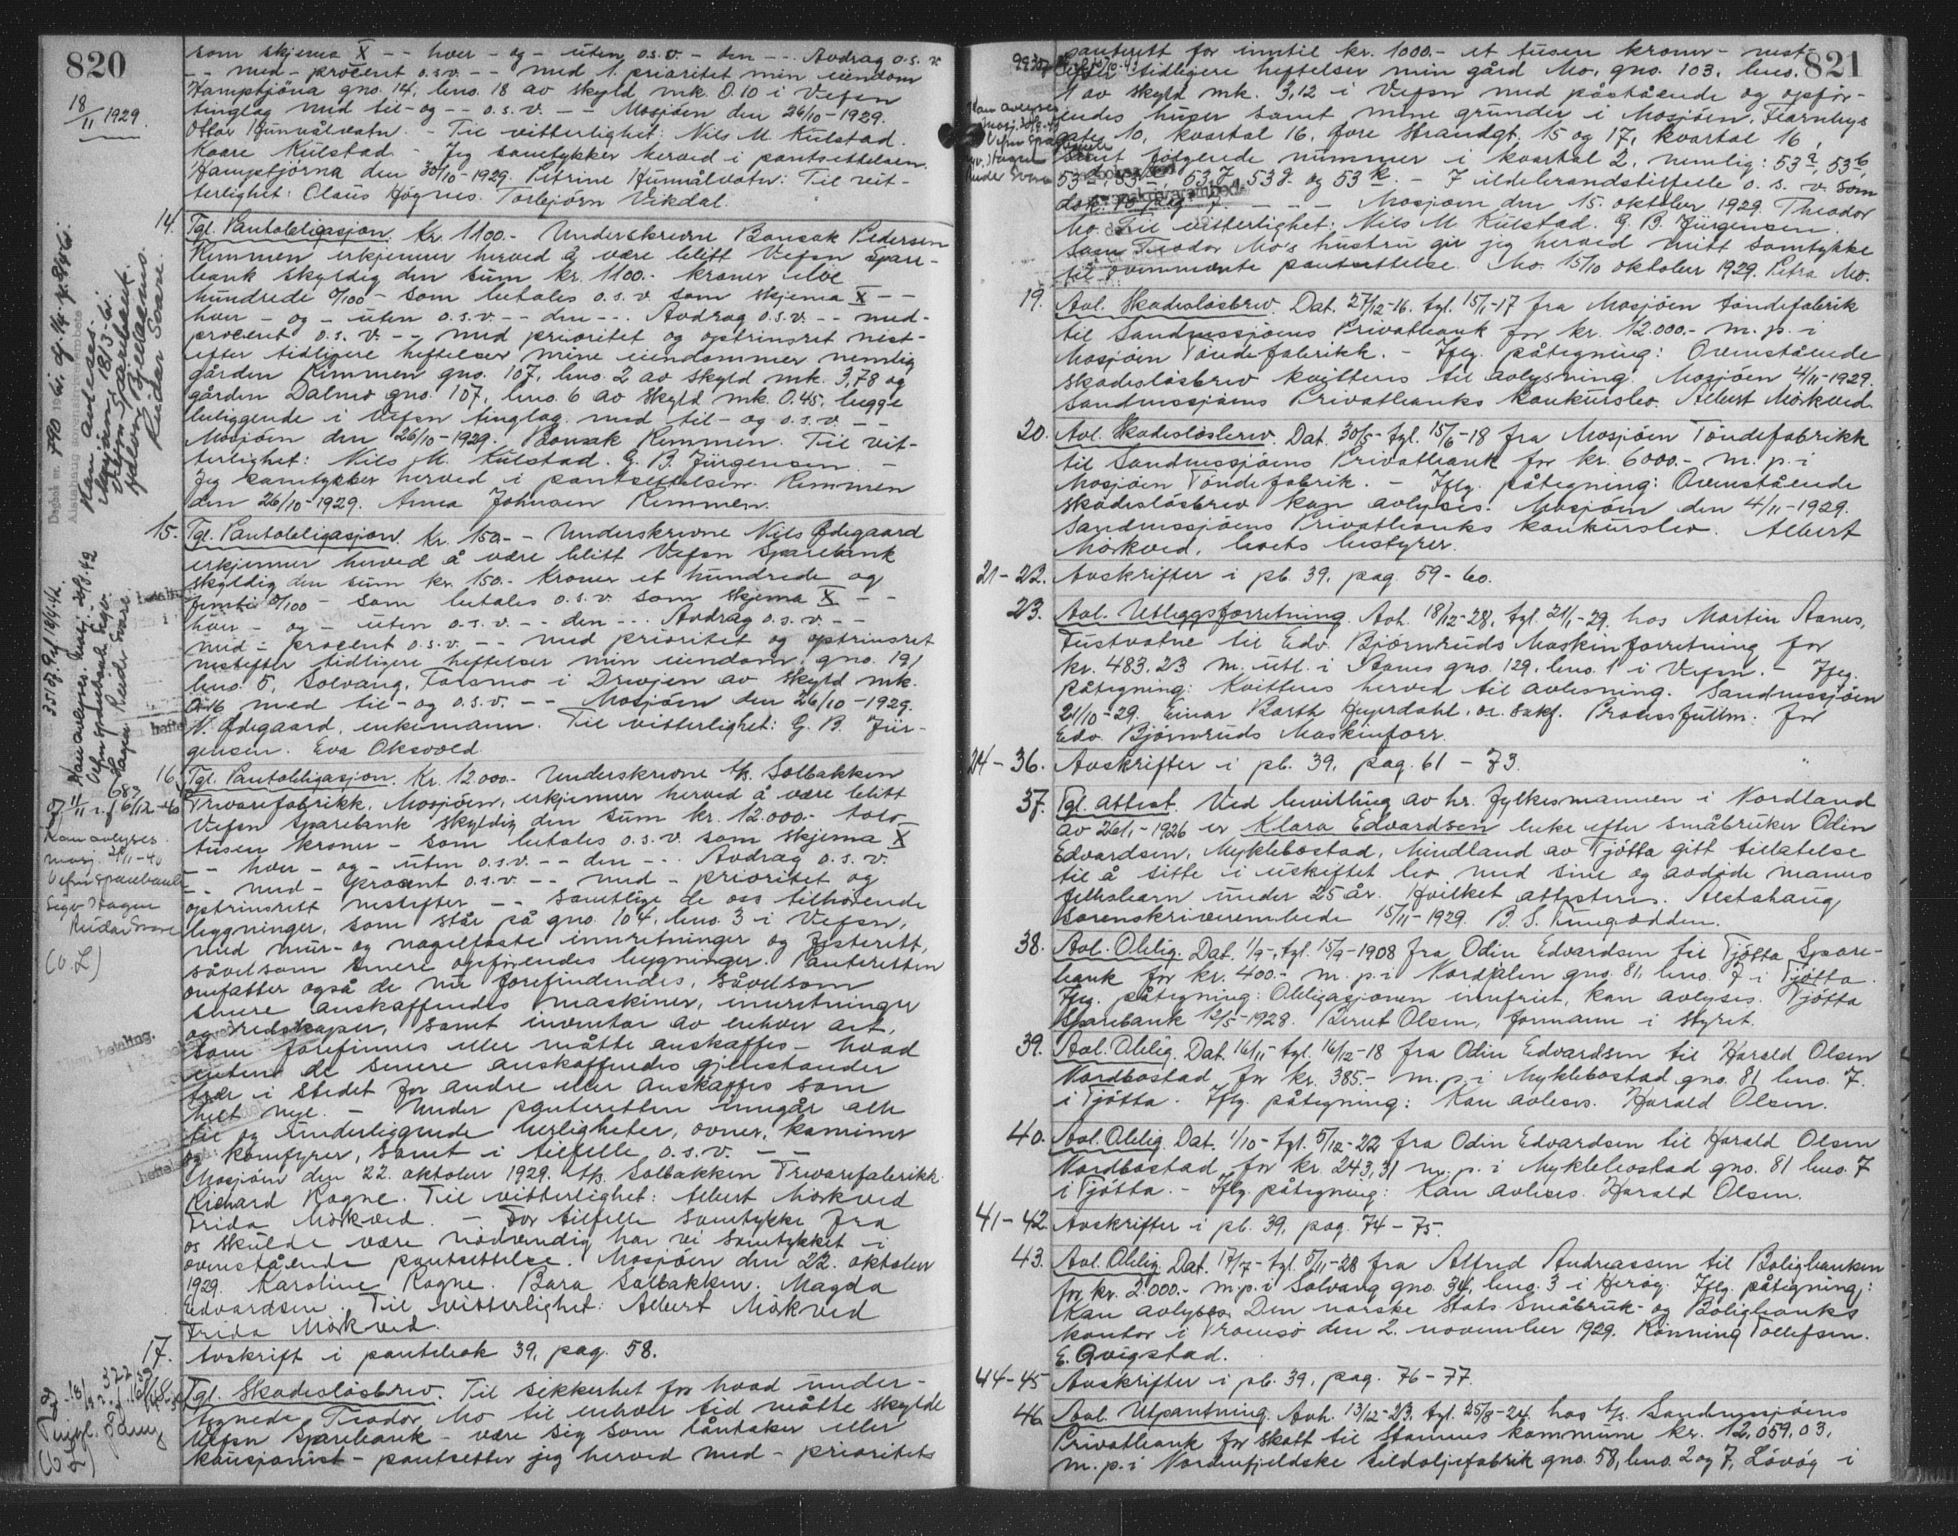 820
18/11 1929.
som skjema X -- hver - og - uten o.s.v. - den --- Avdrag o.s.v.
-- med - procent o.s.v. -- med 1. prioritet min eiendom
Hamptjörna gno. 14, bno. 18 av skyld mk. 0.10 i Vefsn
tinglag med til- og -- o.s.v. -- Mosjöen den 26/10-1929.
Ottar Hunnålvatn. - Til vitterlighet: Nils M Kulstad.
Kaare Kulstad - Jeg samtykker herved i pantsettelsen.
Hamptjörna den 30/10-1929. Petrine Hunnålvatn: Til vit-
terlighet: Claus Högnes. Torbjörn Vikdal.
14. Tgl. Pantobligasjon. Kr. 1100.- Underskrevne Bonsak Pedersen
Remmen erkjenner herved å være blitt Vefsn spare-
bank skyldig den sum kr. 1100.- kroner elve
hundrede 0/100 - som betales o.s.v. som skjema X --
hver - og - uten o.s.v. -- den --- Avdrag o.s.v. -- med-
procent o.s.v. -- med prioritet og optrinsret nest-
efter tidligere heftelser mine eiendommer nemlig
gården Remmen gno. 107, bno. 2 av skyld mk. 3,78 og
gården Dalmo gno. 107, bno. 6 av skyld mk. 0.45, begge
beliggende i Vefsn tinglag med til- og o.s.v. --
Mosjöen den 26/10-1929. Bonsak Remmen. Til vit-
terlighet: Nils M. Kulstad. G. B. Jürgensen. -
Jeg samtykker herved i pantsettelsen. Remmen
den 26/10-1929. Anna Johnsen Remmen.
15. Tgl. Pantobligasjon. Kr. 150.- Underskrevne Nils Ødegaard
erkjenner herved å være blitt Vefsn Sparebank
skyldig den sum kr. 150.- kroner et hundrede og
femti 0/100 - som betales o.s.v. som skjema X --
hver - og - uten o.s.v. -- den --- Avdrag o.s.v. --
med - procent o.s.v. -- med prioritet og optrinsret
nestefter tidligere heftelser min eiendom, gno. 191
bno. 5, Solvang, Forsmo i Drevjen av skyld mk.
med til- og o.s.v. -- Mosjöen den 26/10-1929.
N. Ødegaard, enkemann. Til vitterlighet: G. B. Jür-
gensen. Eva Oksvold
16. Tgl. Pantobligasjon. Kr. 12.000.- Underskrevne A/S. Solbakken
Trevarefabrikk, Mosjöen, erkjenner herved å være blitt
Vefsn Sparebank skyldig den sum kr. 12.000.- tolv
tusen kroner - som betales o.s.v. som skjema X
-- hver - og - uten o.s.v. -- den --- Avdrag o.s.v.
-- med - procent o.s.v. -- med - prioritet og
optrinsrett nestefter -- samtlige de oss tilhörende
bygninger, som står på gno. 104, bno. 3 i Vefsn,
med mur- og nagelfaste innretninger og festerett,
såvelsom senere opföiendes bygninger. Panteretten
omfatter også de nu forefindendes, såvelsom
senere anskaffendes maskiner, innretninger
og redskaper, samt inventar av enhver art,
som forefinnes eller måtte anskaffes - hvad
enten de senere anskaffendes gjenstander
trær i stedet for andre eller anskaffes som
helt nye. - Under panteretten inngår alle
til og underliggende herligheter, ovner, kaminer
og komfyrer, samt i tilfelle o.s.v. --
Mosjöen den 22. oktober 1929. A/S. Solbakken Trevarefabrikk.
Richard Rogne. Til vitterlighet: Albert Mörkved
Frida Mörkved. - For tilfelle samtykke fra
os skulde være nödvendig har vi samtykket i
ovenstående pantsettelse. Mosjöen den 22. oktober
1929. Karoline Rogne. Bara Solbakken. Magda
Edvardsen. Til vitterlighet: Albert Mörkved
Frida Mörkved.
17. Avskrift i pantebok 39, pag. 58.
Tgl. Skadeslösbrev. Til sikkerhet for hvad under-
tegnede Teodor Mo til enhver tid måtte skylde
Vefsn Sparebank - være sig som låntaker eller
kausjonist - pantsetter jeg herved med - prioritets
Kan avlyses
Mosj. 21/11-40
Vefsn sparebank
Sigv. Hagen
Reidar Svare
821
panterett for inntil kr. 1000.- et tusen kroner - nest-
efter tidligere heftelser min gård Mo, gno. 103, bno.
1 av skyld mk. 3,12 i Vefsn med påstående og opför-
lendes huser samt mine grunder i Mosjöen, Fearnleys
gate 10, kvartal 16, övre Strandgt. 15 og 17, kvartal 16,
samt fölgende nummer i kvartal 2, nemlig:
og 53 k. - I ildebrandstilfelle o. s. v. som
Mosjöen den 15. oktober 1929. Theodor
Mo. Til vitterlighet: Nils M Kulstad. G. B. Jürgensen.
Som Teodor Mo's hustru gir jeg herved mitt samtykke
til ovennevnte pantsettelse. Mo 15/10 oktober 1929. Petra Mo.
19. Avl. Skadeslösbrev. Dat. 27/12-16. tgl. 15/1-17 fra Mosjöen töndefabrik
til Sandnessjöens Privatbank for kr. 12.000.- m. p. i
Mosjöen Töndefabrikk. - Iflg. påtegning: Ovenstående
skadeslösbrev kvitteres til avlysning. Mosjöen 4/11-1929.
Sandnessjöens Privatbanks konkursbo. Albert Mörkved.
20. Avl. Skadeslösbrev. Dat. 30/5- tgl. 15/6-18 fra Mosjöen Töndefabrikk
til Sandnessjöens Privatbank for kr. 6000.- m. p. i
Mosjöen Töndefabrik. - Iflg. påtegning: Ovenstående
skadeslösbrev kan avlyses. Mosjöen den 4/11-1929.
Sandnessjöens Privatbanks konkursbo. Albert
Mörkved, boets bestyrer.
21-22. Avskrifter i pb. 39, pag. 59-60.
23. Avl. Utleggsforretning. Avh. 18/12-28, tgl. 21/1-29. hos Martin Aanes,
Fustvatne til Edv. Björnruds Maskinforretning for
kr. 483,23 m. utl. i Aanes gno. 129, bno. 1 i Vefsn. - Iflg.
påtegning: Kvitteres herved til avlesning. Sandnessjöen
21/10-29. Einar Barth Heyerdahl, o.r. sakf. Prosessfullm. for
Edv. Björnruds Maskinforr.
24-36. Avskrifter i pb. 39, pag. 61 - 73.
37. Tgl. attest. Ved bevilling av hr. fylkesmannen i Nordland
av 26/1-1926 er Klara Edvardsen enke efter småbruker Odin
Edvardsen, Myklebostad, Mindland av Tjötta gitt tillatelse
til å sitte i uskiftet bo med sine og avdöde manns
fellesbarn under 25 år. Hvilket attesteres. Alstahaug
Sorenskriverembede 15/11-1929. B. S. Tungodden.
38. Avl. Oblig. Dat. 1/9- tgl. 15/9-1908 fra Odin Edvardsen til Tjötta Spare-
bank for kr. 400.- m. p. i Nordjalen gno. 81, bno. 7 i Tjötta.
Iflg. påtegning: Obligasjonen innfriet, kan avlyses. Tjötta
Sparebank 12/5-1928. Bernt Olsen, formann i styret.
39. Avl. Oblig. Dat. 16/11- tgl. 16/12-18 fra Odin Edvardsen til Harald Olsen
Nordbostad for kr. 385.- m. p. i Myklebostad gno. 81 bno. 7.
i Tjötta. Iflg. påtegning: Kan avleses. Harald Olsen.
40. Avl. Oblig. Dat. 1/10- tgl. 5/12-22 fra Odin Edvardsen til Harald Olsen
Nordbostad for kr. 243,31 m. p. i Myklebostad gno. 81 bno. 7
i Tjötta. - Iflg. påtegning: Kan avleses. Harald Olsen.
41-42. Avskrifter i pb. 39, pag. 74-75.
43. Avl. Oblig. Dat. 17/7- tgl. 5/11-28 fra Alfred Andreassen til Boligbanken
for kr. 2.000.- m.p. i Solvang gno. 34, bno. 3 i Heröy. Iflg. påtegning:
Kan avlyses. Den norske Stats Småbruk- og Boligbanks
kontor i Tromsö den 2. november 1929. Rönning Tollefsen.
E. Qvigstad.
44-45 Avskrifter i pb. 39, pag. 76-77.
46. Avl. Utpantning. Avh. 13/12-23. tgl. 25/8-24 hos A/S. Sandnessjöens
Privatbank for skatt til Stamnes kommune kr. 12,059,03,
m. p. i Nordenfjeldske sildoljefabrik gno. 58, bno. 2 og 7, Lövöy i